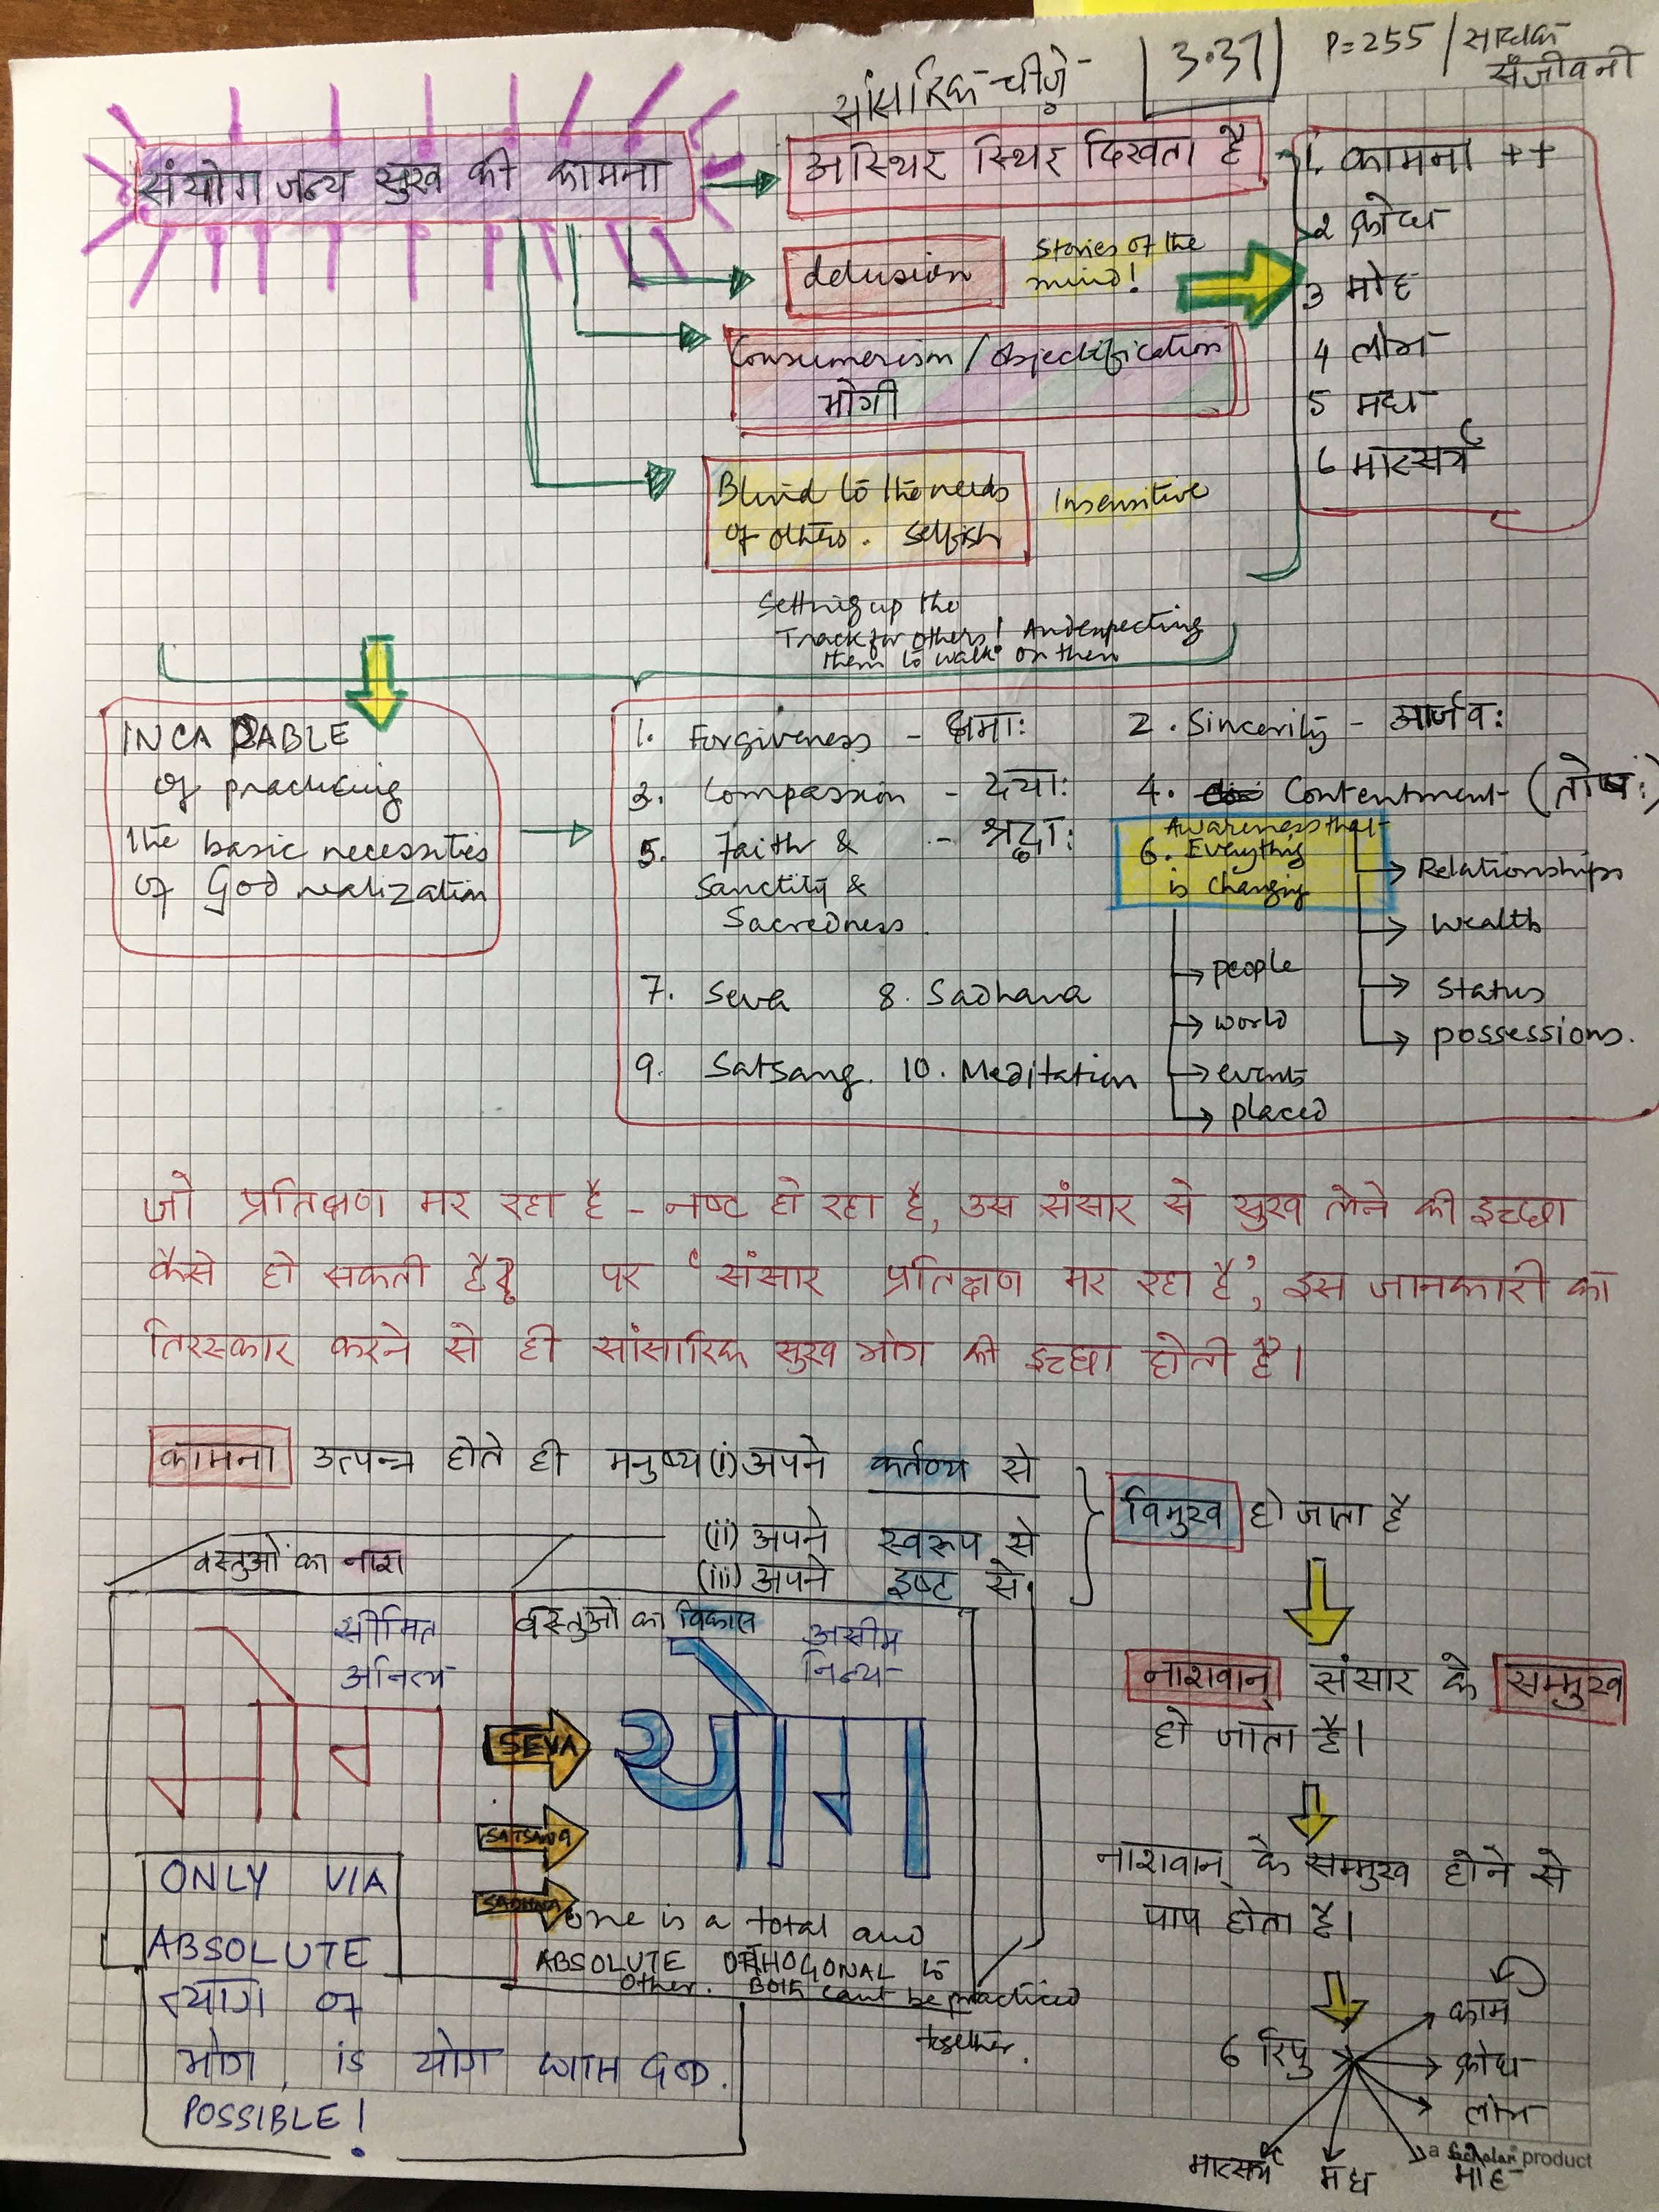 सांसारिक चीज़े
3.37
P=255 / साधक
संजीवनी
संयोग जन्य सुख की कामना
अस्थिर स्थिर दिखता है
1. कामना ++
2 क्रोध
3 मोह
4 लोभ
5 मद्य
6 मात्सर्य
delusion
Stories of the
mind!
Consumerism / Objectification
भोगी
Blind to the needs
of others. Selfish
Insensitive
Setting up the
Track for others! And expecting
them to walk on them
INCAPABLE
of practicing
the basic necessities
of God realization
1. Forgiveness - क्षमाः
2. Sincerity - आर्जवः
3. Compassion - दयाः
4. Contentment (तोषः)
5. Faith & - श्रद्धाः
Sanctity &
Sacredness.
Awareness that
6. Everything
is changing
Relationships
Wealth
Status
possessions.
people
world
events
placed
7. Seva 8. Sadhana
9. Satsang. 10. Meditation
जो प्रतिक्षण मर रहा है - नष्ट हो रहा है, उस संसार से सुख लेने की इच्छा
कैसे हो सकती है? पर 'संसार प्रतिक्षण मर रहा है', इस जानकारी का
तिरस्कार करने से ही सांसारिक सुख भोग की इच्छा होती है।
कामना उत्पन्न होते ही मनुष्य (i) अपने कर्तव्य से
(ii) अपने स्वरूप से
(iii) अपने इष्ट से
विमुख हो जाता है
वस्तुओं का नाश
सीमित
अनित्य
भोग
वस्तुओं का विकास
असीम
नित्य
योग
SEVA
SATSANG
SADHNA
One is a total and
ABSOLUTE ORTHOGONAL to
Other. Both cant be practiced
together.
ONLY VIA
ABSOLUTE
त्याग of
भोग, is योग with GOD.
POSSIBLE!
नाशवान् संसार के सम्मुख
हो जाता है।
नाशवान् के सम्मुख होने से
पाप होता है।
6 रिपु
काम
क्रोध
लोभ
मोह
मद्य
मात्सर्य
a Scholar product